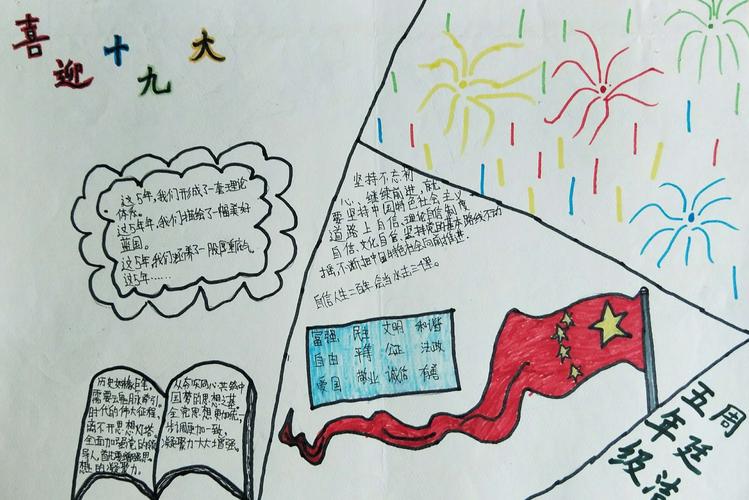 喜迎十九大
这5年,我们形成了一套理论
体系。
这5年年,我们描绘了一幅美好
蓝图。
这5年,我们还养了一股重振气
这5年……
坚持不忘初
心,继续前进,就
要坚持中国特色社会主义
道路上自信,理论自信,制度
自信,文化自信,坚持党的基本路线不动
摇,不断把中国特色社会向前推进.
自信人生二百年,会当水击三千里。
富强 民主 文明 和谐
自由 平等 公正 法政
爱国 敬业 诚信 友善
历史如像巨轮,
需要
时代的伟大征程,
离不开思想灯塔。
全面加强党的领
导人,
想的凝聚力。
国梦的思想之基
全党思想更加统一,
步调更加一致,
凝聚力大大增强。
五年级
周廷浩